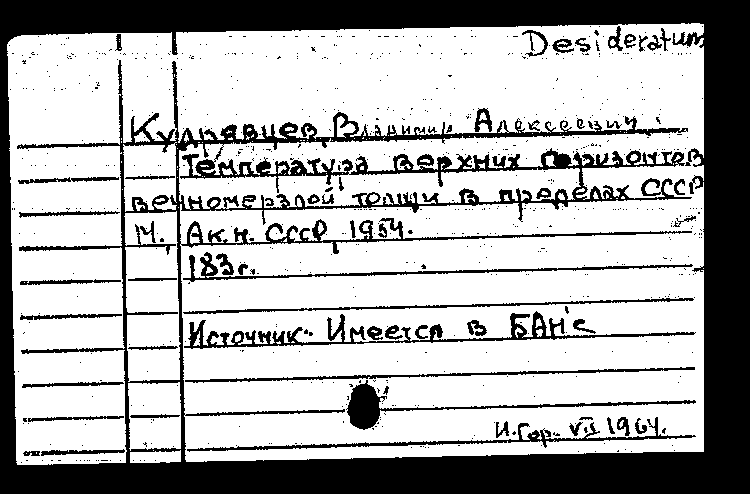 Desideratum
Кудрявцев, Владимир Алексеевич.
Температура верхних горизонтов
вечномерзлой толщи в пределах СССР
М., Ак.н. СССР, 1954.
183с.
Источник: Имеется в БАН'е
И.Гор. VII 1964.